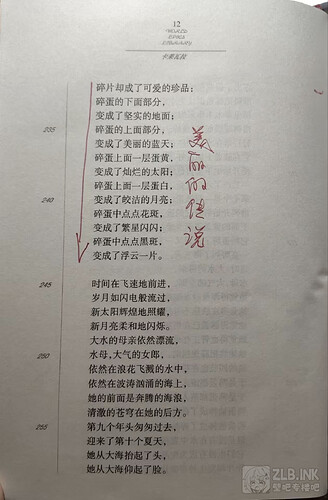 12
WORLD
EPICS
LIBRARY
卡勒瓦拉
碎片却成了可爱的珍品；
碎蛋的下面部分，
变成了坚实的地面；
235 碎蛋的上面部分，
变成了美丽的蓝天；
碎蛋上面一层蛋黄，
变成了灿烂的太阳；
碎蛋上面一层蛋白，
240 变成了皎洁的月亮；
碎蛋中点点花斑，
变成了繁星闪闪；
碎蛋中点点黑斑，
变成了浮云一片。
美丽的传说
245 时间在飞速地前进，
岁月如闪电般流过，
新太阳辉煌地照耀，
新月亮柔和地闪烁。
大水的母亲依然漂流，
250 水母，大气的女郎，
依然在浪花飞溅的水中，
依然在波涛汹涌的海上，
她的前面是奔腾的海浪，
清澈的苍穹在她的后方。
255 第九个年头匆匆过去，
迎来了第十个夏天，
她从大海抬起了头，
她从大海仰起了脸。
ZLB.INK
坚吧专楼吧